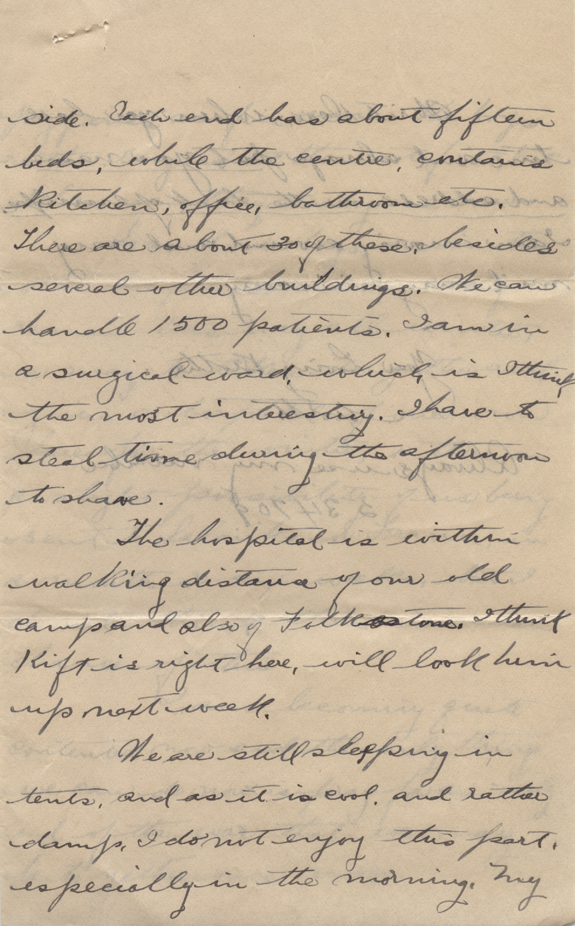 side. Each end has about fifteen
beds, while the centre, contains
Kitchen, office, bathroom etc.
There are about 30 of these, besides
several other buildings. We can
handle 1500 patients. I am in
a surgical ward, which, is I think
the most interesting. I have to
steal time during the afternoon
to shave.
The hospital is within
walking distance of our old
camp and also of Folkestone. I think
Kift is right here, will look him
up next week.
We are still sleeping in
tents, and as it is cool, and rather
damp, I do not enjoy this part,
especially in the morning. My